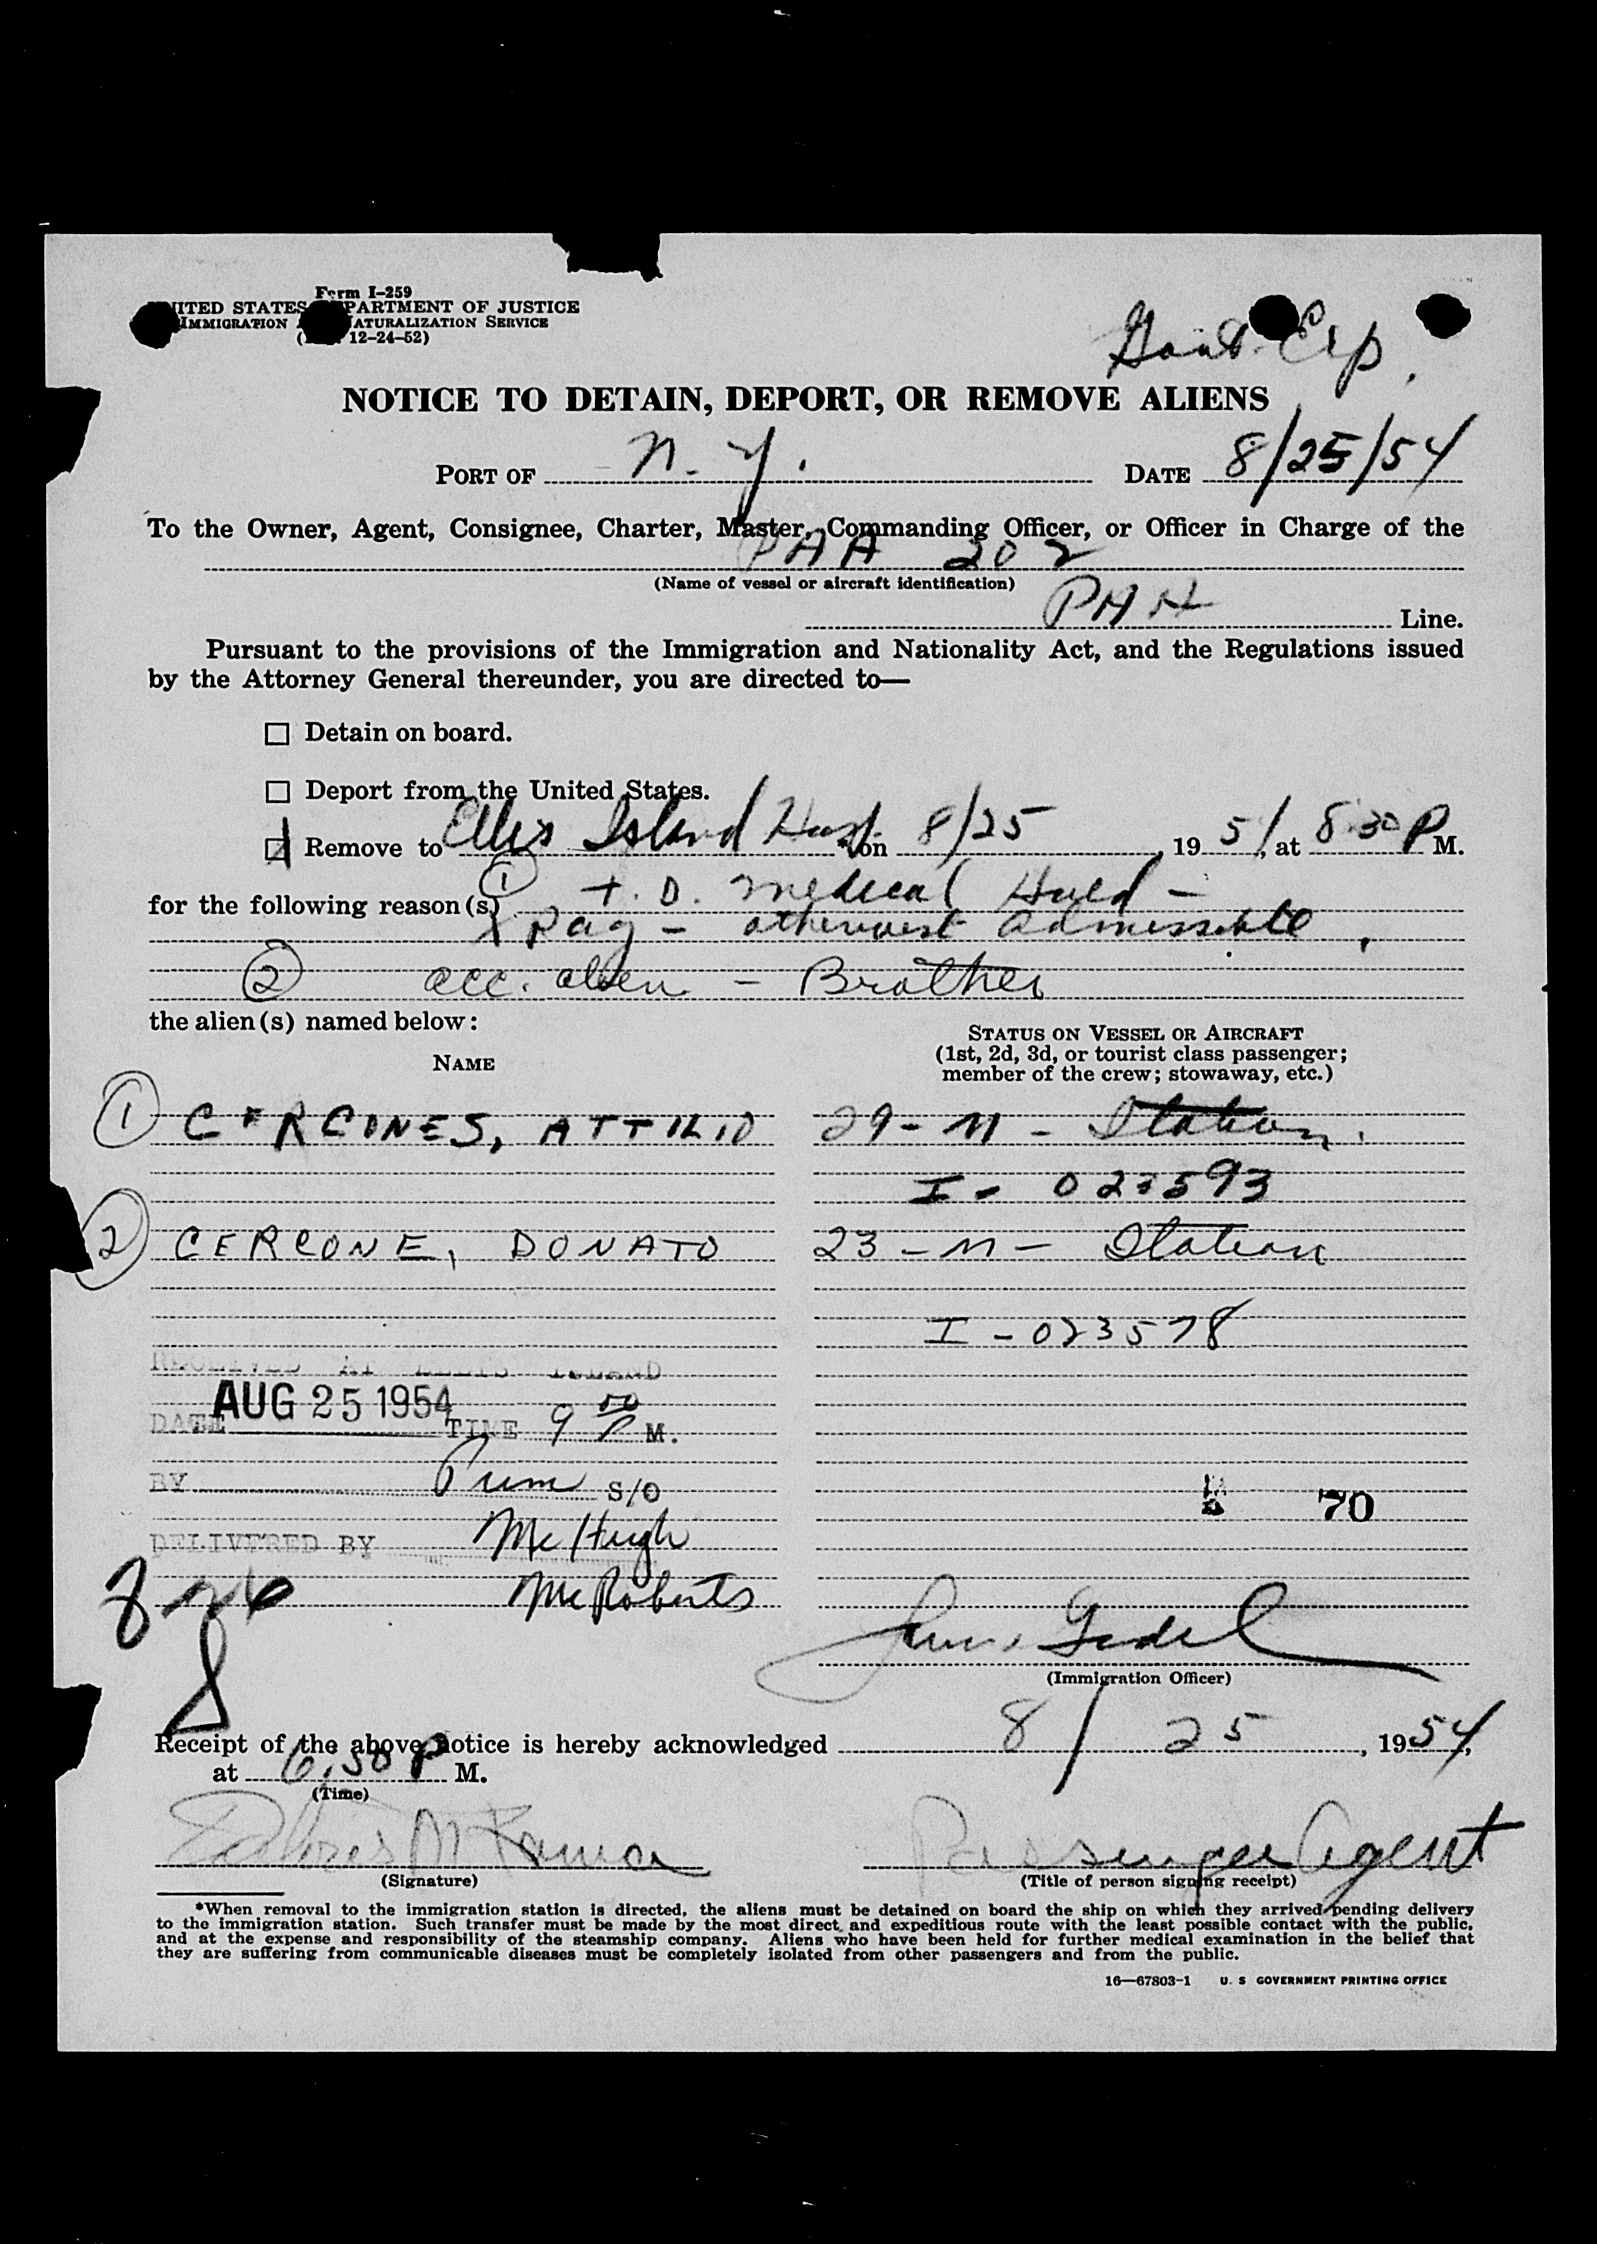 Form I-259
UNITED STATES DEPARTMENT OF JUSTICE
IMMIGRATION NATURALIZATION SERVICE
12-24-52)
Govt. Exp.
NOTICE TO DETAIN, DEPORT, OR REMOVE ALIENS
PORT OF N. Y. DATE 8/25/54
To the Owner, Agent, Consignee, Charter, Master, Commanding Officer, or Officer in Charge of the
PAA 202
(Name of vessel or aircraft identification)
PAA Line.
Pursuant to the provisions of the Immigration and Nationality Act, and the Regulations issued
by the Attorney General thereunder, you are directed to—
Detain on board.
Deport from the United States.
Remove to Ellis Island Hosp. *on 8/25, 195/, at 8:30 P M.
for the following reason(s) ① T. D. Medical Hold -
X Ray - otherwise admissible.
② acc. alien - Brother
the alien(s) named below:
NAME
STATUS ON VESSEL OR AIRCRAFT
(1st, 2d, 3d, or tourist class passenger;
member of the crew; stowaway, etc.)
① CERCONES, ATTILIO 29 - M - Italian.
I - 023593
② CERCONE, DONATO 23 - M - Italian
I - 023578
RECEIVED AT ELLIS ISLAND
DATE AUG 25 1954 TIME 9 50 P M.
BY S/O
70
DELIVERED BY McHugh
McRoberts
(Immigration Officer)
Receipt of the above notice is hereby acknowledged 8/25, 1954,
at 6:50 P M.
(Time)
Passenger Agent
(Signature) (Title of person signing receipt)
*When removal to the immigration station is directed, the aliens must be detained on board the ship on which they arrived pending delivery
to the immigration station. Such transfer must be made by the most direct and expeditious route with the least possible contact with the public,
and at the expense and responsibility of the steamship company. Aliens who have been held for further medical examination in the belief that
they are suffering from communicable diseases must be completely isolated from other passengers and from the public.
16—67803-1 U. S GOVERNMENT PRINTING OFFICE